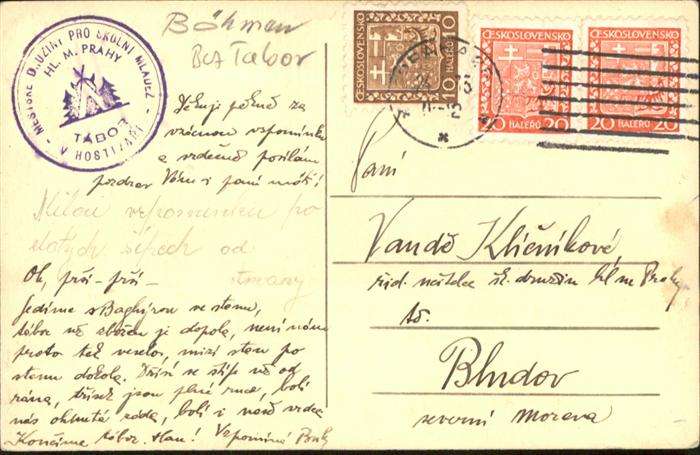 Böhmen
Bez Tabor
MĚSTSKÉ DRUŽINY PRO ŠKOLNÍ MLÁDEŽ
HL. M. PRAHY
TÁBOR
V HOSTIVAŘI
ČESKOSLOVENSKO
10 10
ČESKOSLOVENSKO
20 HALÉŘŮ 20
ČESKOSLOVENSKO
20 HALÉŘŮ 20
Děkuji pěkně za
vzácnou vzpomínku
a srdečně posílám
pozdrav Vám i paní
Milou vzpomínku po
zlatých šípech od
Oh, prší - prší -
Jedíme s Baghýrou ve stanu,
tábor už zbořen je dopola, není nám
proto též veselo, mizí stan po
stanu dokola.
rána, třísek jsou plné ruce, bolí
nás ohnutá záda, bolí i naše srdce
Končíme tábor. Vzpomíná
Paní
Vandě Kličníkové
říd. družin hl. m. Prahy
Bludov
severní Morava